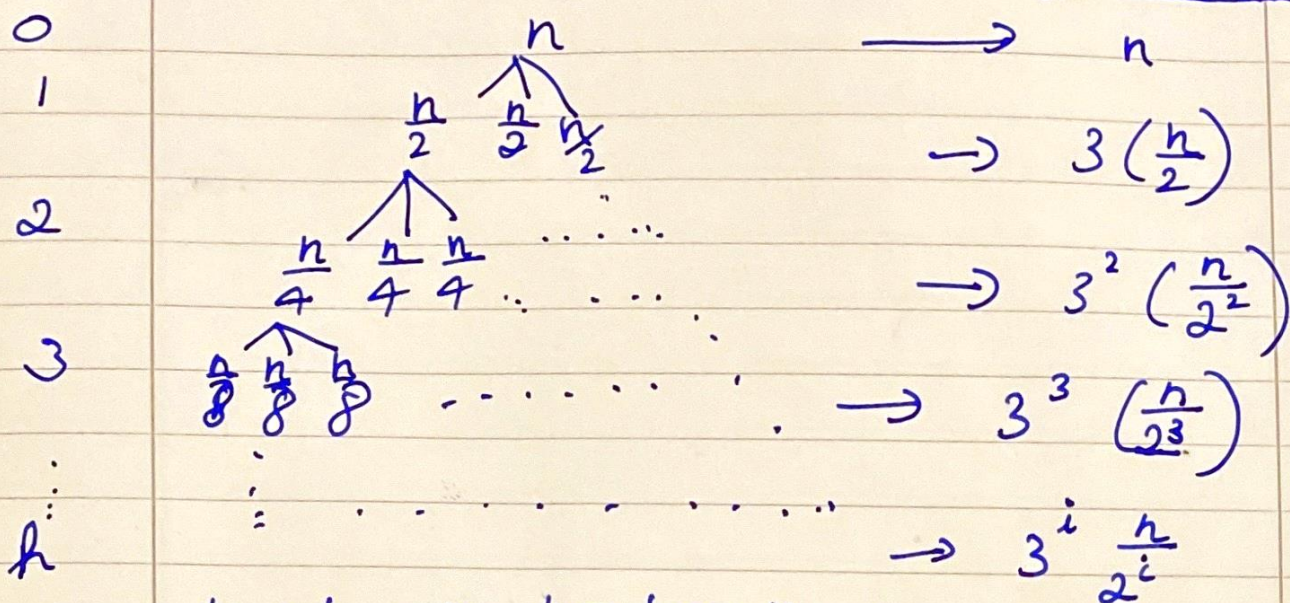 0 n → n
1 n/2 n/2 n/2 → 3 (n/2)
2 n/4 n/4 n/4 ..... → 3² (n/2²)
3 n/8 n/8 n/8 ....... → 3³ (n/2³)
⋮ ⋮ .........
h → 3ⁱ n/2ⁱ